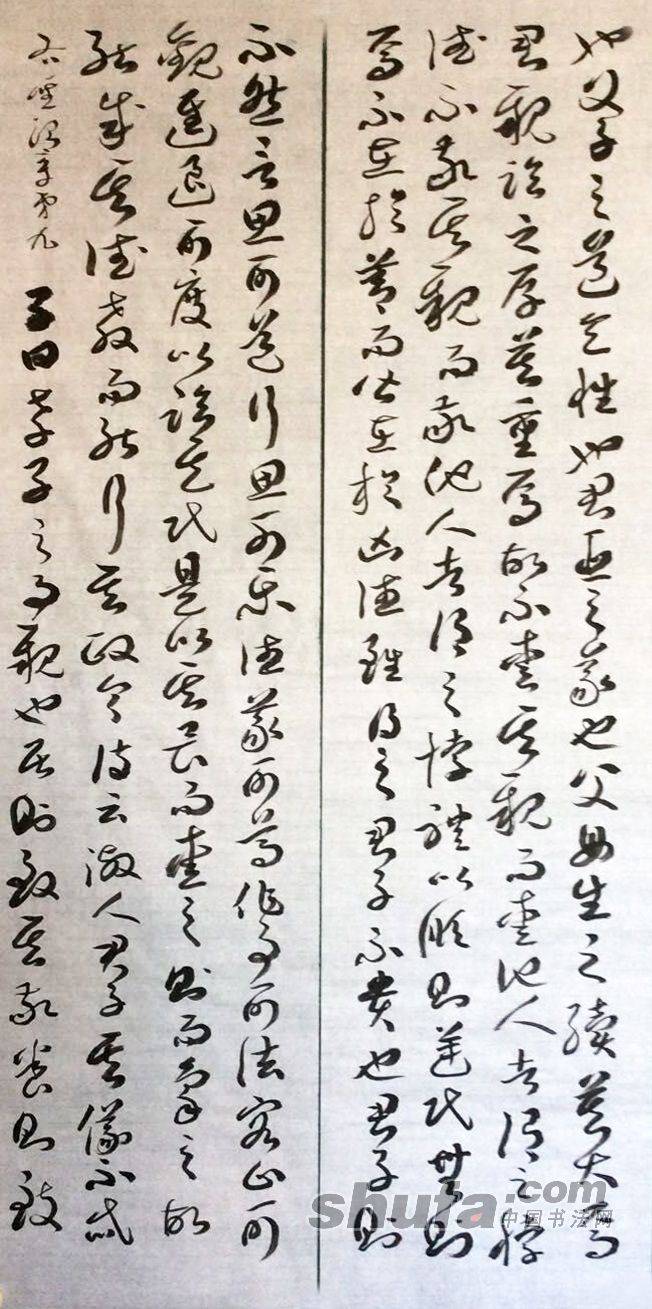 也父子之道天性也君臣之義也父母生之續莫大焉
君親臨之厚莫重焉故不愛其親而愛他人者謂之悖
德不敬其親而敬他人者謂之悖禮以順則逆民無則
焉不在於善而皆在於凶德雖得之君子不貴也君子則
不然言思可道行思可樂德義可尊作事可法容止可
觀進退可度以臨其民是以其畏而愛之則而象之故
能成其德教而能行其政令詩云淑人君子其儀不忒
右聖治章第九 子曰孝子之事親也居則致其敬養則致
shufa.com
中国书法网